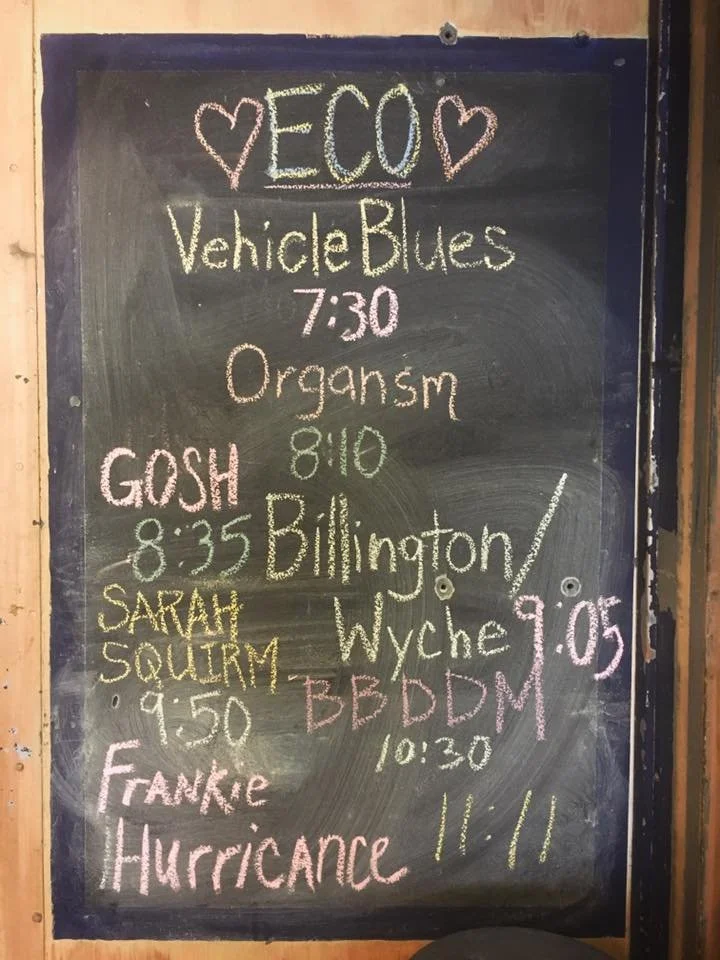 ECO
Vehicle Blues
7:30
Organsm
8:10
GOSH
8:35
Billington/
Wyche 9:05
SARAH
SQUIRM
9:50
BBDDM
10:30
FRANKie
HurricANce
11:11